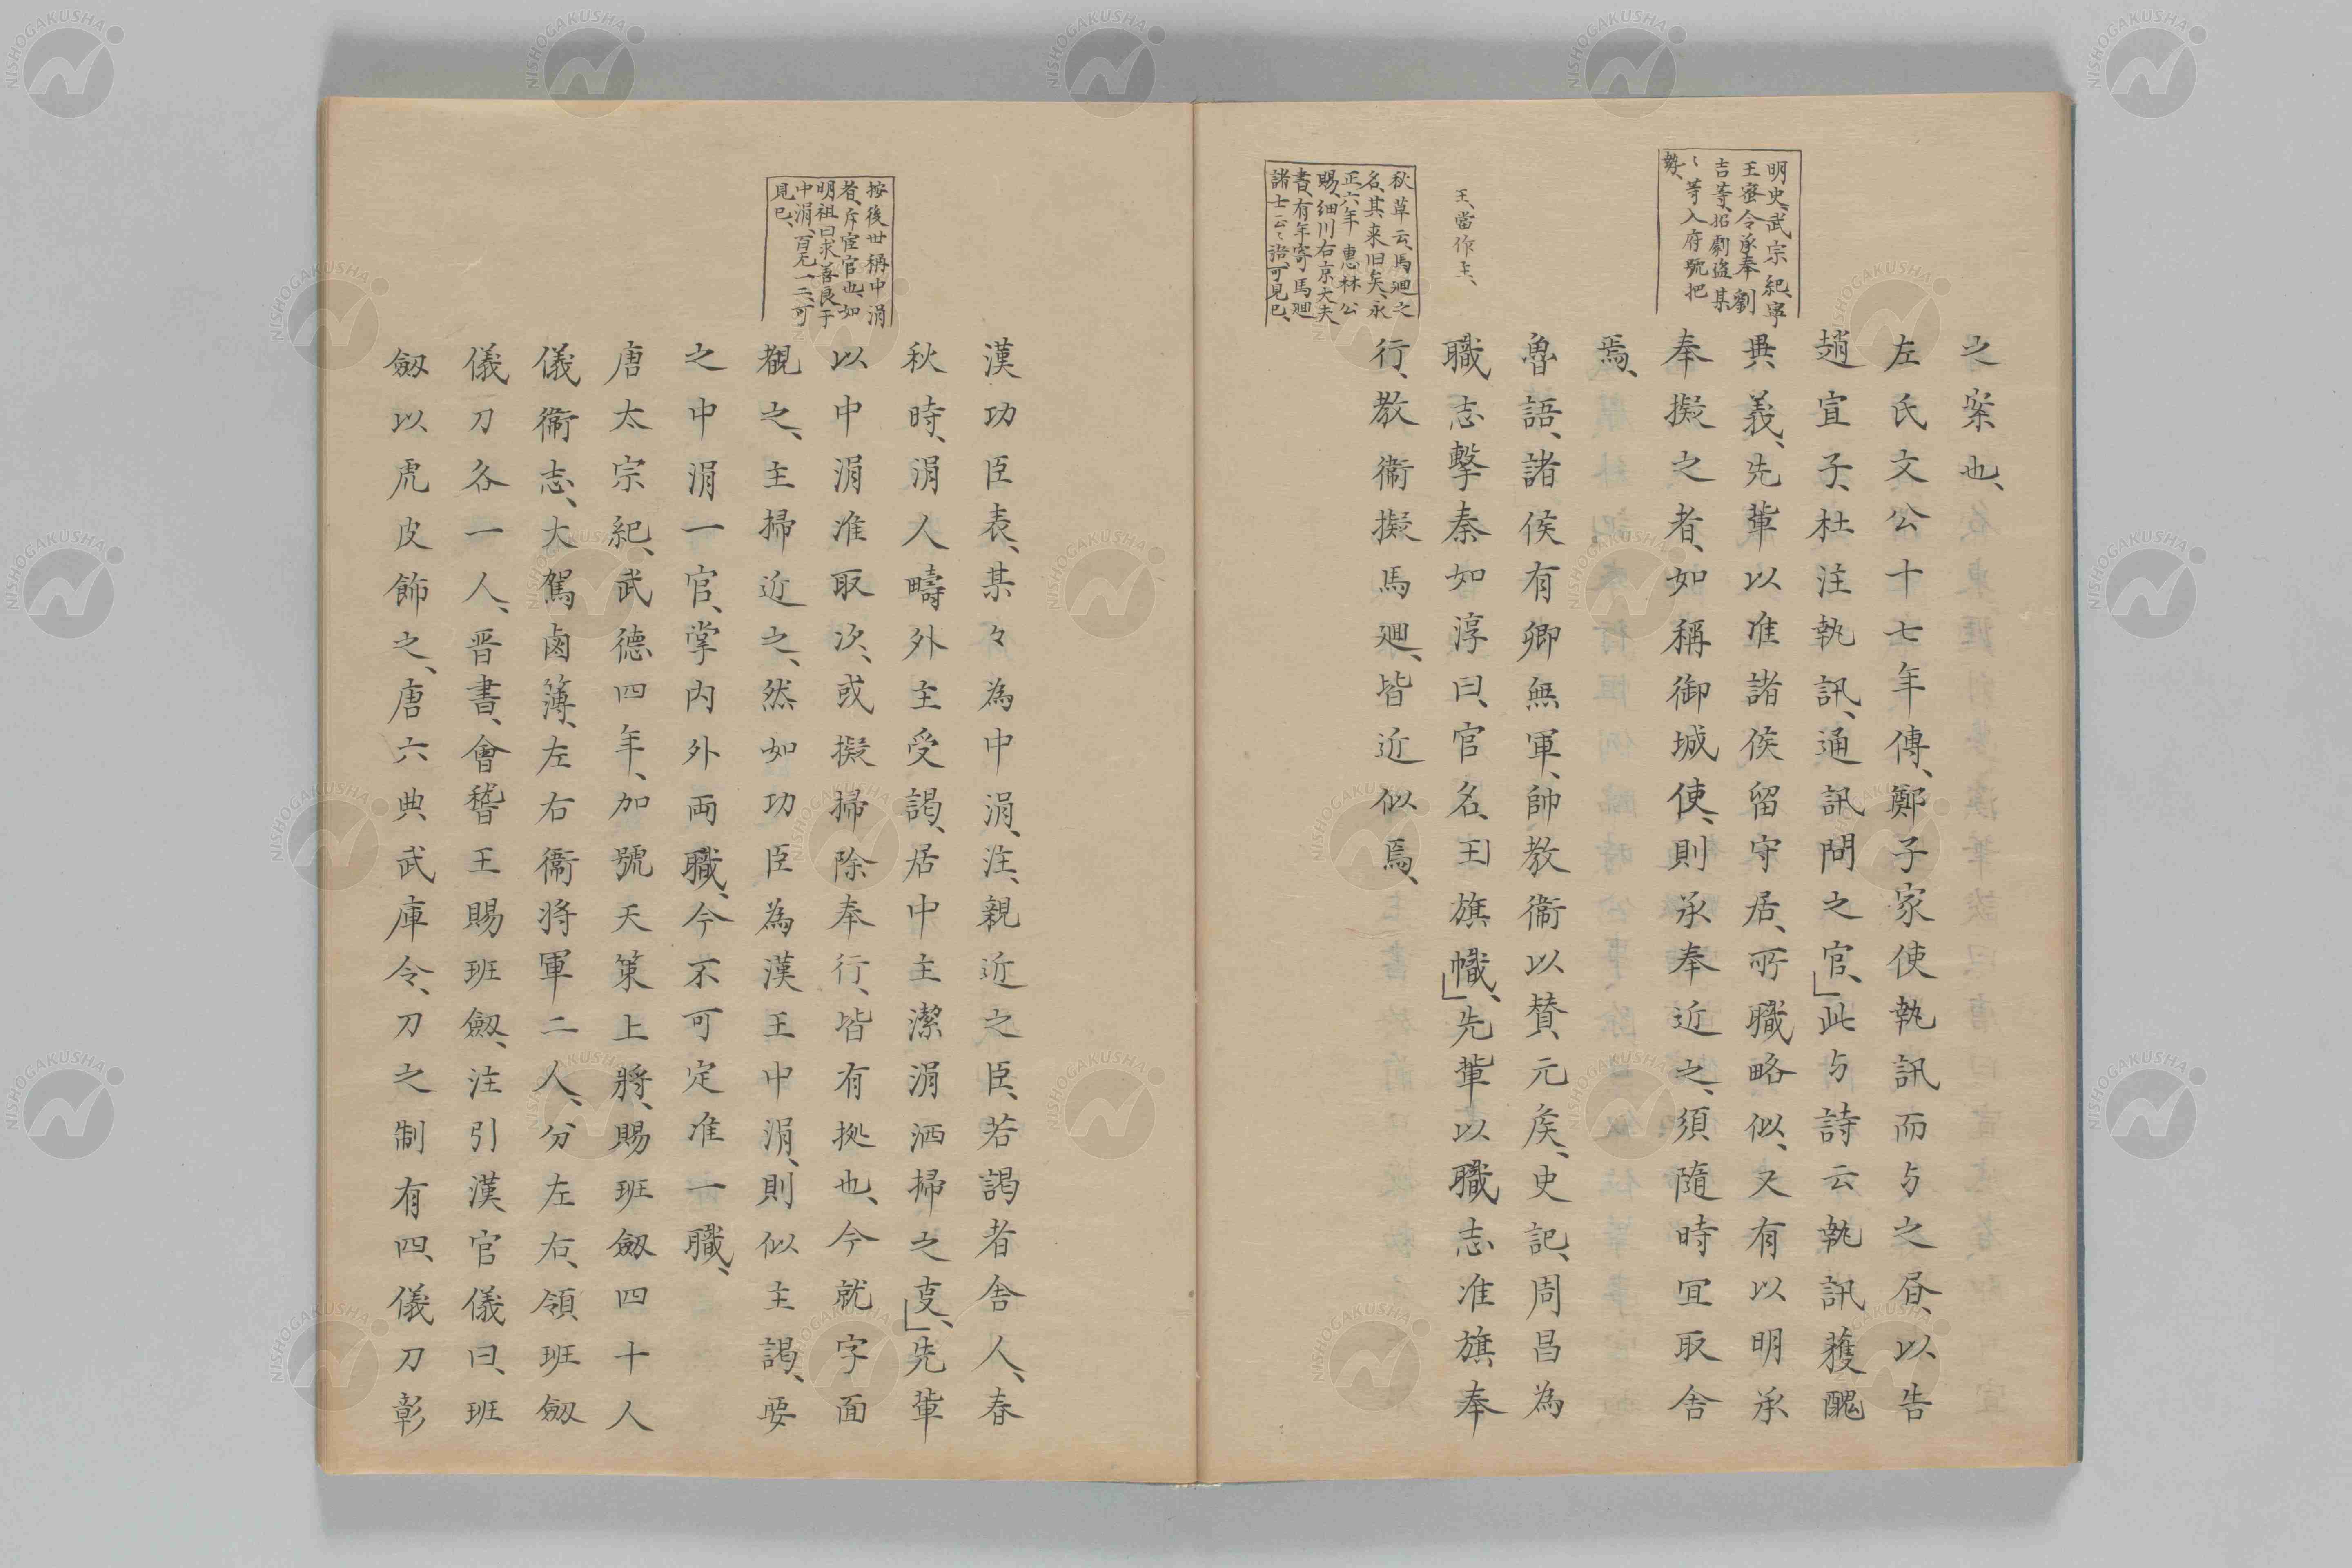 明史、武宗紀、寧
王宻令承奉劉
吉䓁、招劇盗某
〻䓁入府號把
勢、
王、當作主、
秋草云、馬廻之
名、其来旧矣、永
正六年 惠林公
賜、細川右京大夫
書、有年寄馬廻
諸士云〻語、可見已、
之案也、
左氏文公十七年傳、鄭子家使執訊而与之㫺、以告
趙宣子、杜注執訊、通訊問之官、」此与詩云執訊獲醜
異義、先輩以准諸侯留守居、所職略似、又有以明承
奉擬之者、如稱御城使、則承奉近之、須隨時冝取舎
焉、
魯語、諸侯有卿無軍、帥教衞以賛元矦、史記、周昌為
職志擊秦如淳曰、官名、王旗幟、」先輩以職志准旗奉
行、教衞擬馬廻、皆近似焉、
按後世稱中涓
者、斥宦官也、如
明祖曰求善良于
中涓、百无一二、可
見已、
漢功臣表、某々為中涓、注、親近之臣、若謁者舎人、春
秋時、涓人疇外主受謁、居中主潔涓洒掃之㕝、」先輩
以中涓准取次、或擬掃除奉行、皆有拠也、今就字面
観之、主掃近之、然如功臣為漢王中涓、則似主謁、要
之中涓一官、掌内外両職、今不可定准一職、
唐太宗紀、武德四年、加號天策上將、賜班劔四十人
儀衞志、大駕鹵簿、左右衞将軍二人、分左右、領班劔
儀刀各一人、晋書、會稽王賜班劔、注引漢官儀曰、班
劔以虎皮飾之、唐六典武庫令、刀之制有四、儀刀彰